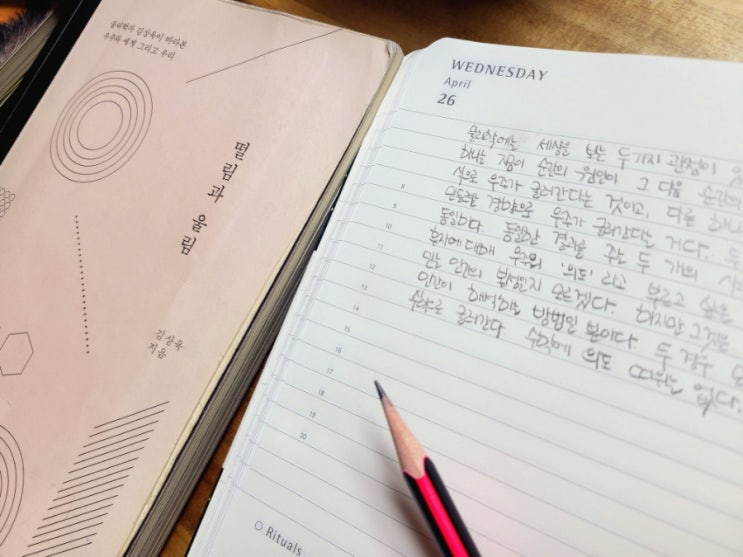 물리학자 김상욱이 바라본
우주와 세계 그리고 우리
떨림과 울림
김상욱
지음
WEDNESDAY
April
26
물리학에는 세상을 보는 두가지 관점이
하나는 지금이 순간의 원인이 그 다음 순간의
식으로 우주가 굴러간다는 것이고, 다른 하나
경향으로 우주가 굴러간다는 거다. 두
동일하다. 동일한 결과를 주는 두 개의
후자에 대해 우주의 '의도'라고 부르고 싶은
인간의 본성인지 모르겠다. 하지만 그것은
인간이 해석하는 방법일 뿐이다. 두 경우
수학으로 굴러간다. 수학에 의도 따위는 없다.
8
9
10
11
12
13
14
15
16
17
18
19
20
Rituals